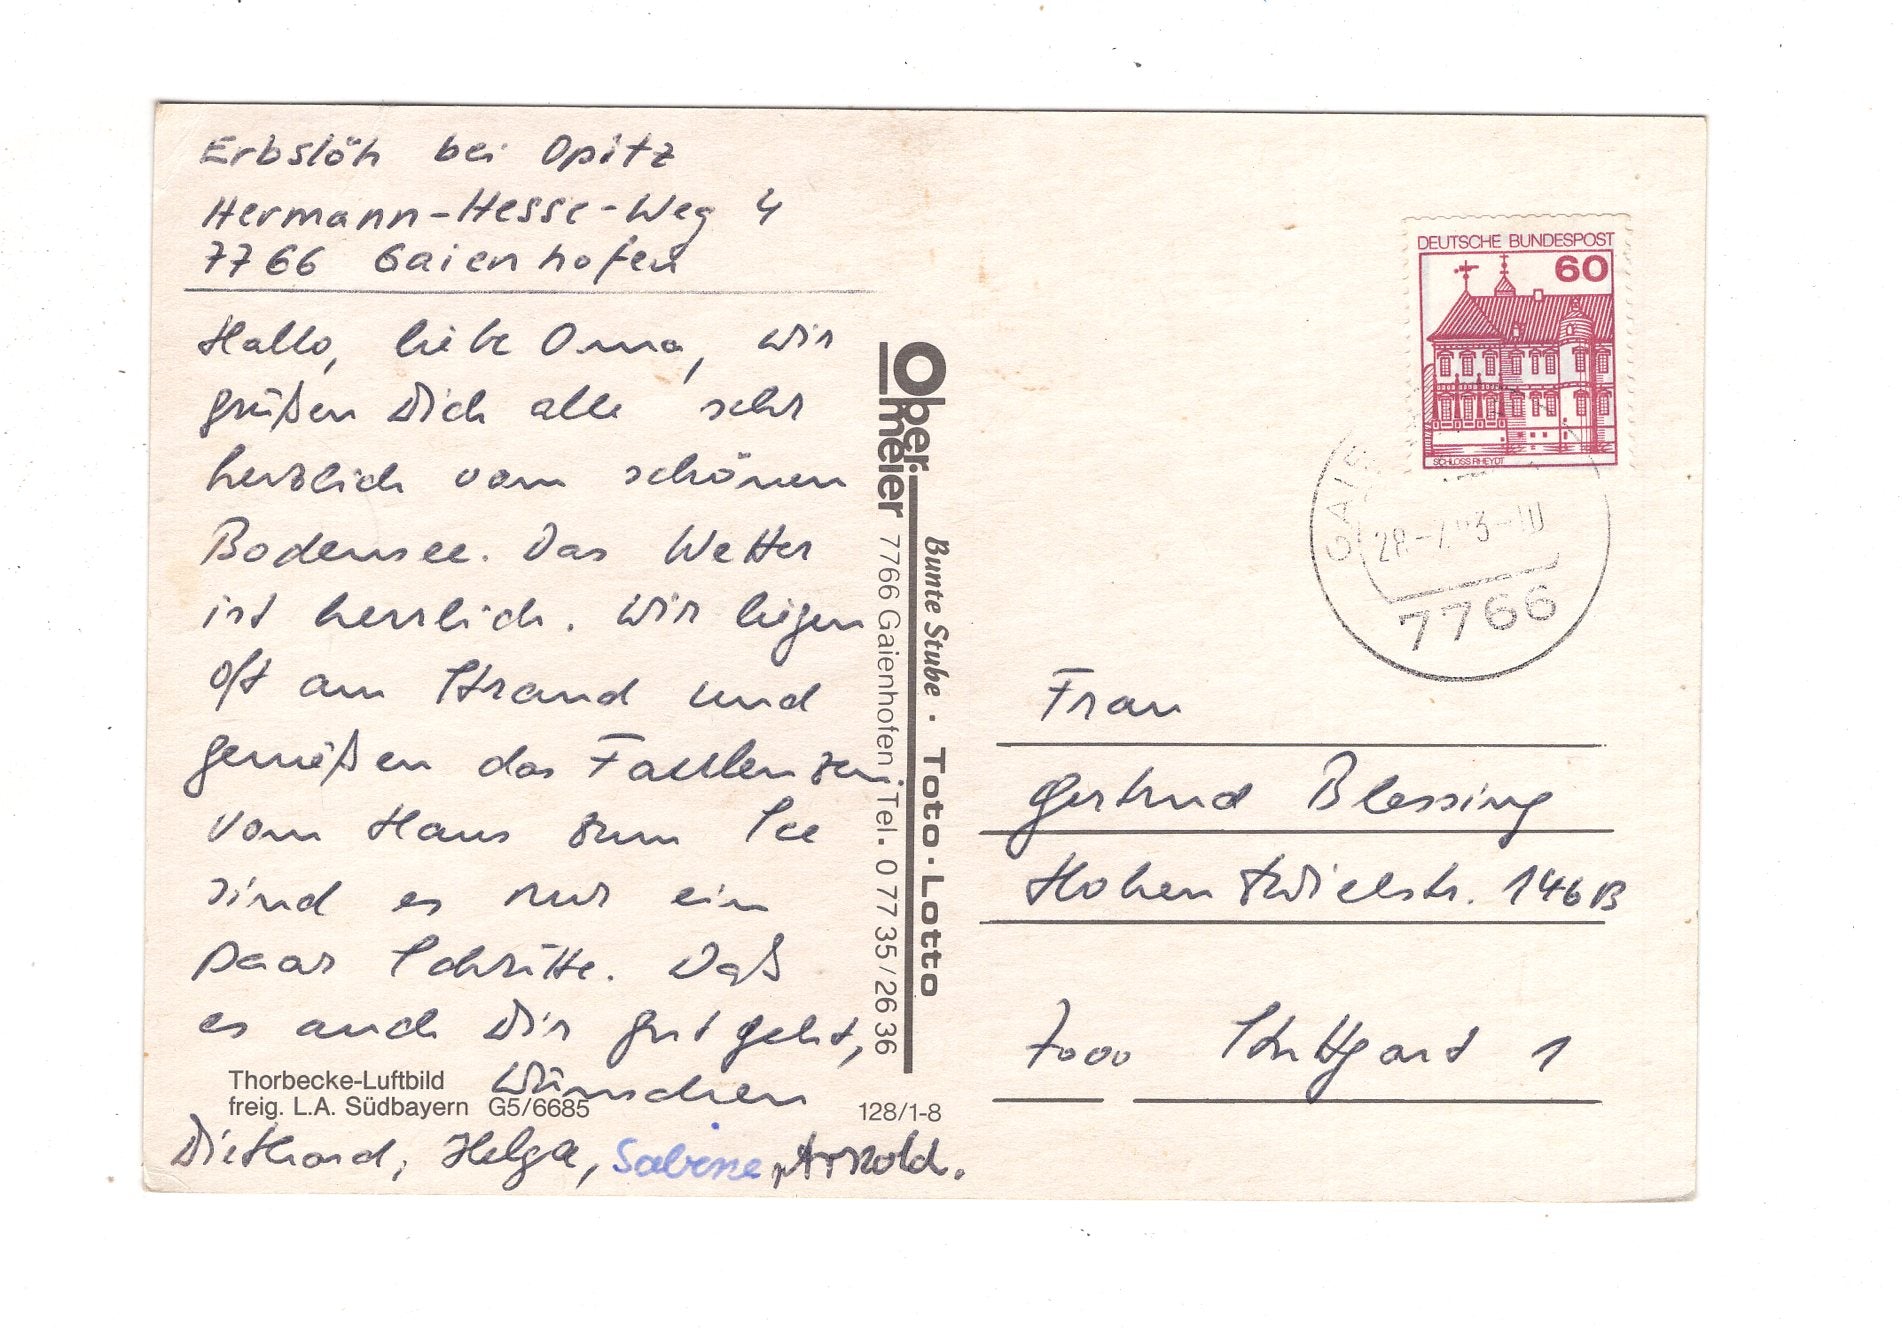 Erbslöh bei Opitz
Hermann-Hesse-Weg 4
7766 Gaienhofen
Hallo, liebe Oma, wir
grüßen Dich alle sehr
herzlich vom schönen
Bodensee. Das Wetter
ist herrlich. Wir liegen
oft am Strand und
genießen das Faulenzen.
Vom Haus zum See
sind es nur ein
paar Schritte. Daß
es auch Dir gut geht,
wünschen
Diethard, Helga, Sabine, Arnold.
Thorbecke-Luftbild
freig. L.A. Südbayern G5/6685
128/1-8
Obermeier 7766 Gaienhofen · Tel. 0 77 35 / 26 36
Bunte Stube · Toto · Lotto
DEUTSCHE BUNDESPOST
60
SCHLOSS RHEYDT
7766
Frau
Gertrud Blessing
Hohentwielstr. 146B
7000 Stuttgart 1